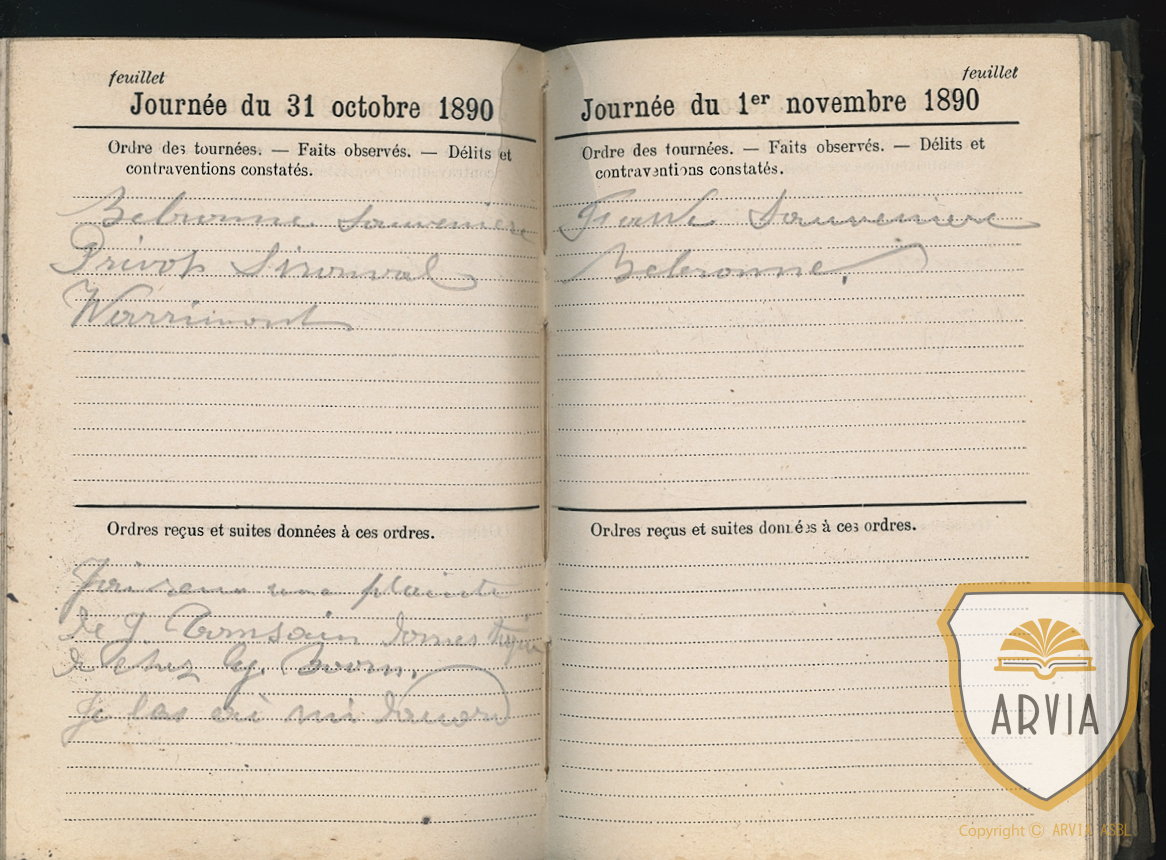 feuillet
Journée du 31 octobre 1890
Ordre des tournées. — Faits observés. — Délits et
contraventions constatés.
Bebronne Sauvenière
Privot Sinonval
Warrimont
Ordres reçus et suites données à ces ordres.
J'ai une plainte
de J Tomsain domestique
de chez
Je
feuillet
Journée du 1er novembre 1890
Ordre des tournées. — Faits observés. — Délits et
contraventions constatés.
Sauveniere
Bebronne.
Ordres reçus et suites données à ces ordres.
ARVIA
Copyright © ARVIA ASBL